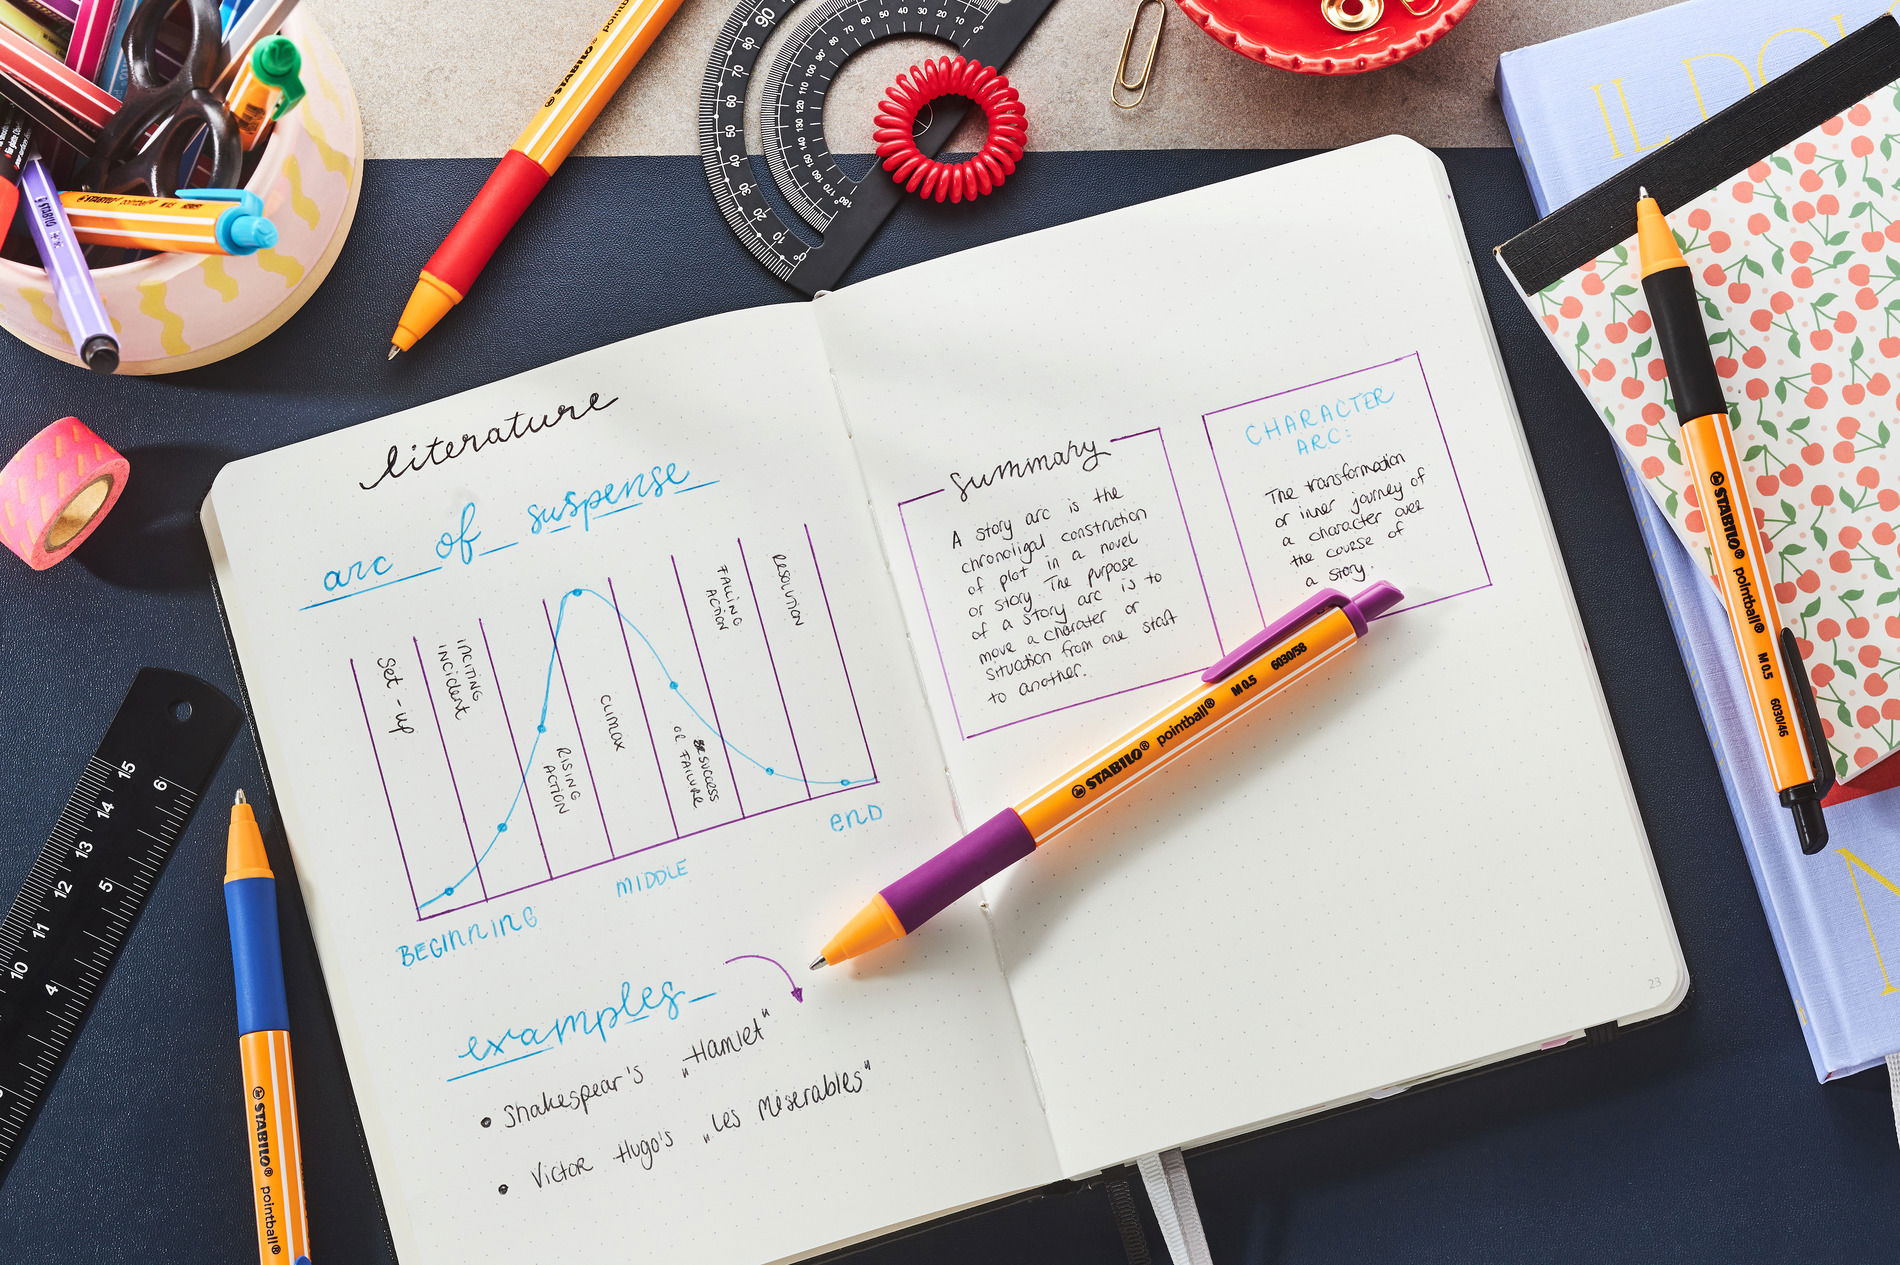 literature
arc of suspense
Set-up
INCITING
INCIDENT
RISING
ACTION
CLIMAX
SUCCESS
OR FAILURE
FALLING
ACTION
RESOLUTION
BEGINNING
MIDDLE
END
examples
• Shakespear's „Hamlet"
• Victor Hugo's „Les Miserables"
summary
A story arc is the
chronoligal construction
of plot in a novel
or story. The purpose
of a story arc is to
move a charater or
situation from one start
to another.
CHARACTER
ARC:
The transformation
or inner journey of
a character over
the course of
a story.
23
STABILO® pointball® M 0.5 6030/58
STABILO® pointball® M 0.5 6030/46
STABILO® pointball®
STABILO® pointball
STABILO pointball
STABILO
IL DOL
N
90
80
70
60
50
40
30
20
10
0°
15
14
13
12
11
10
6
5
4